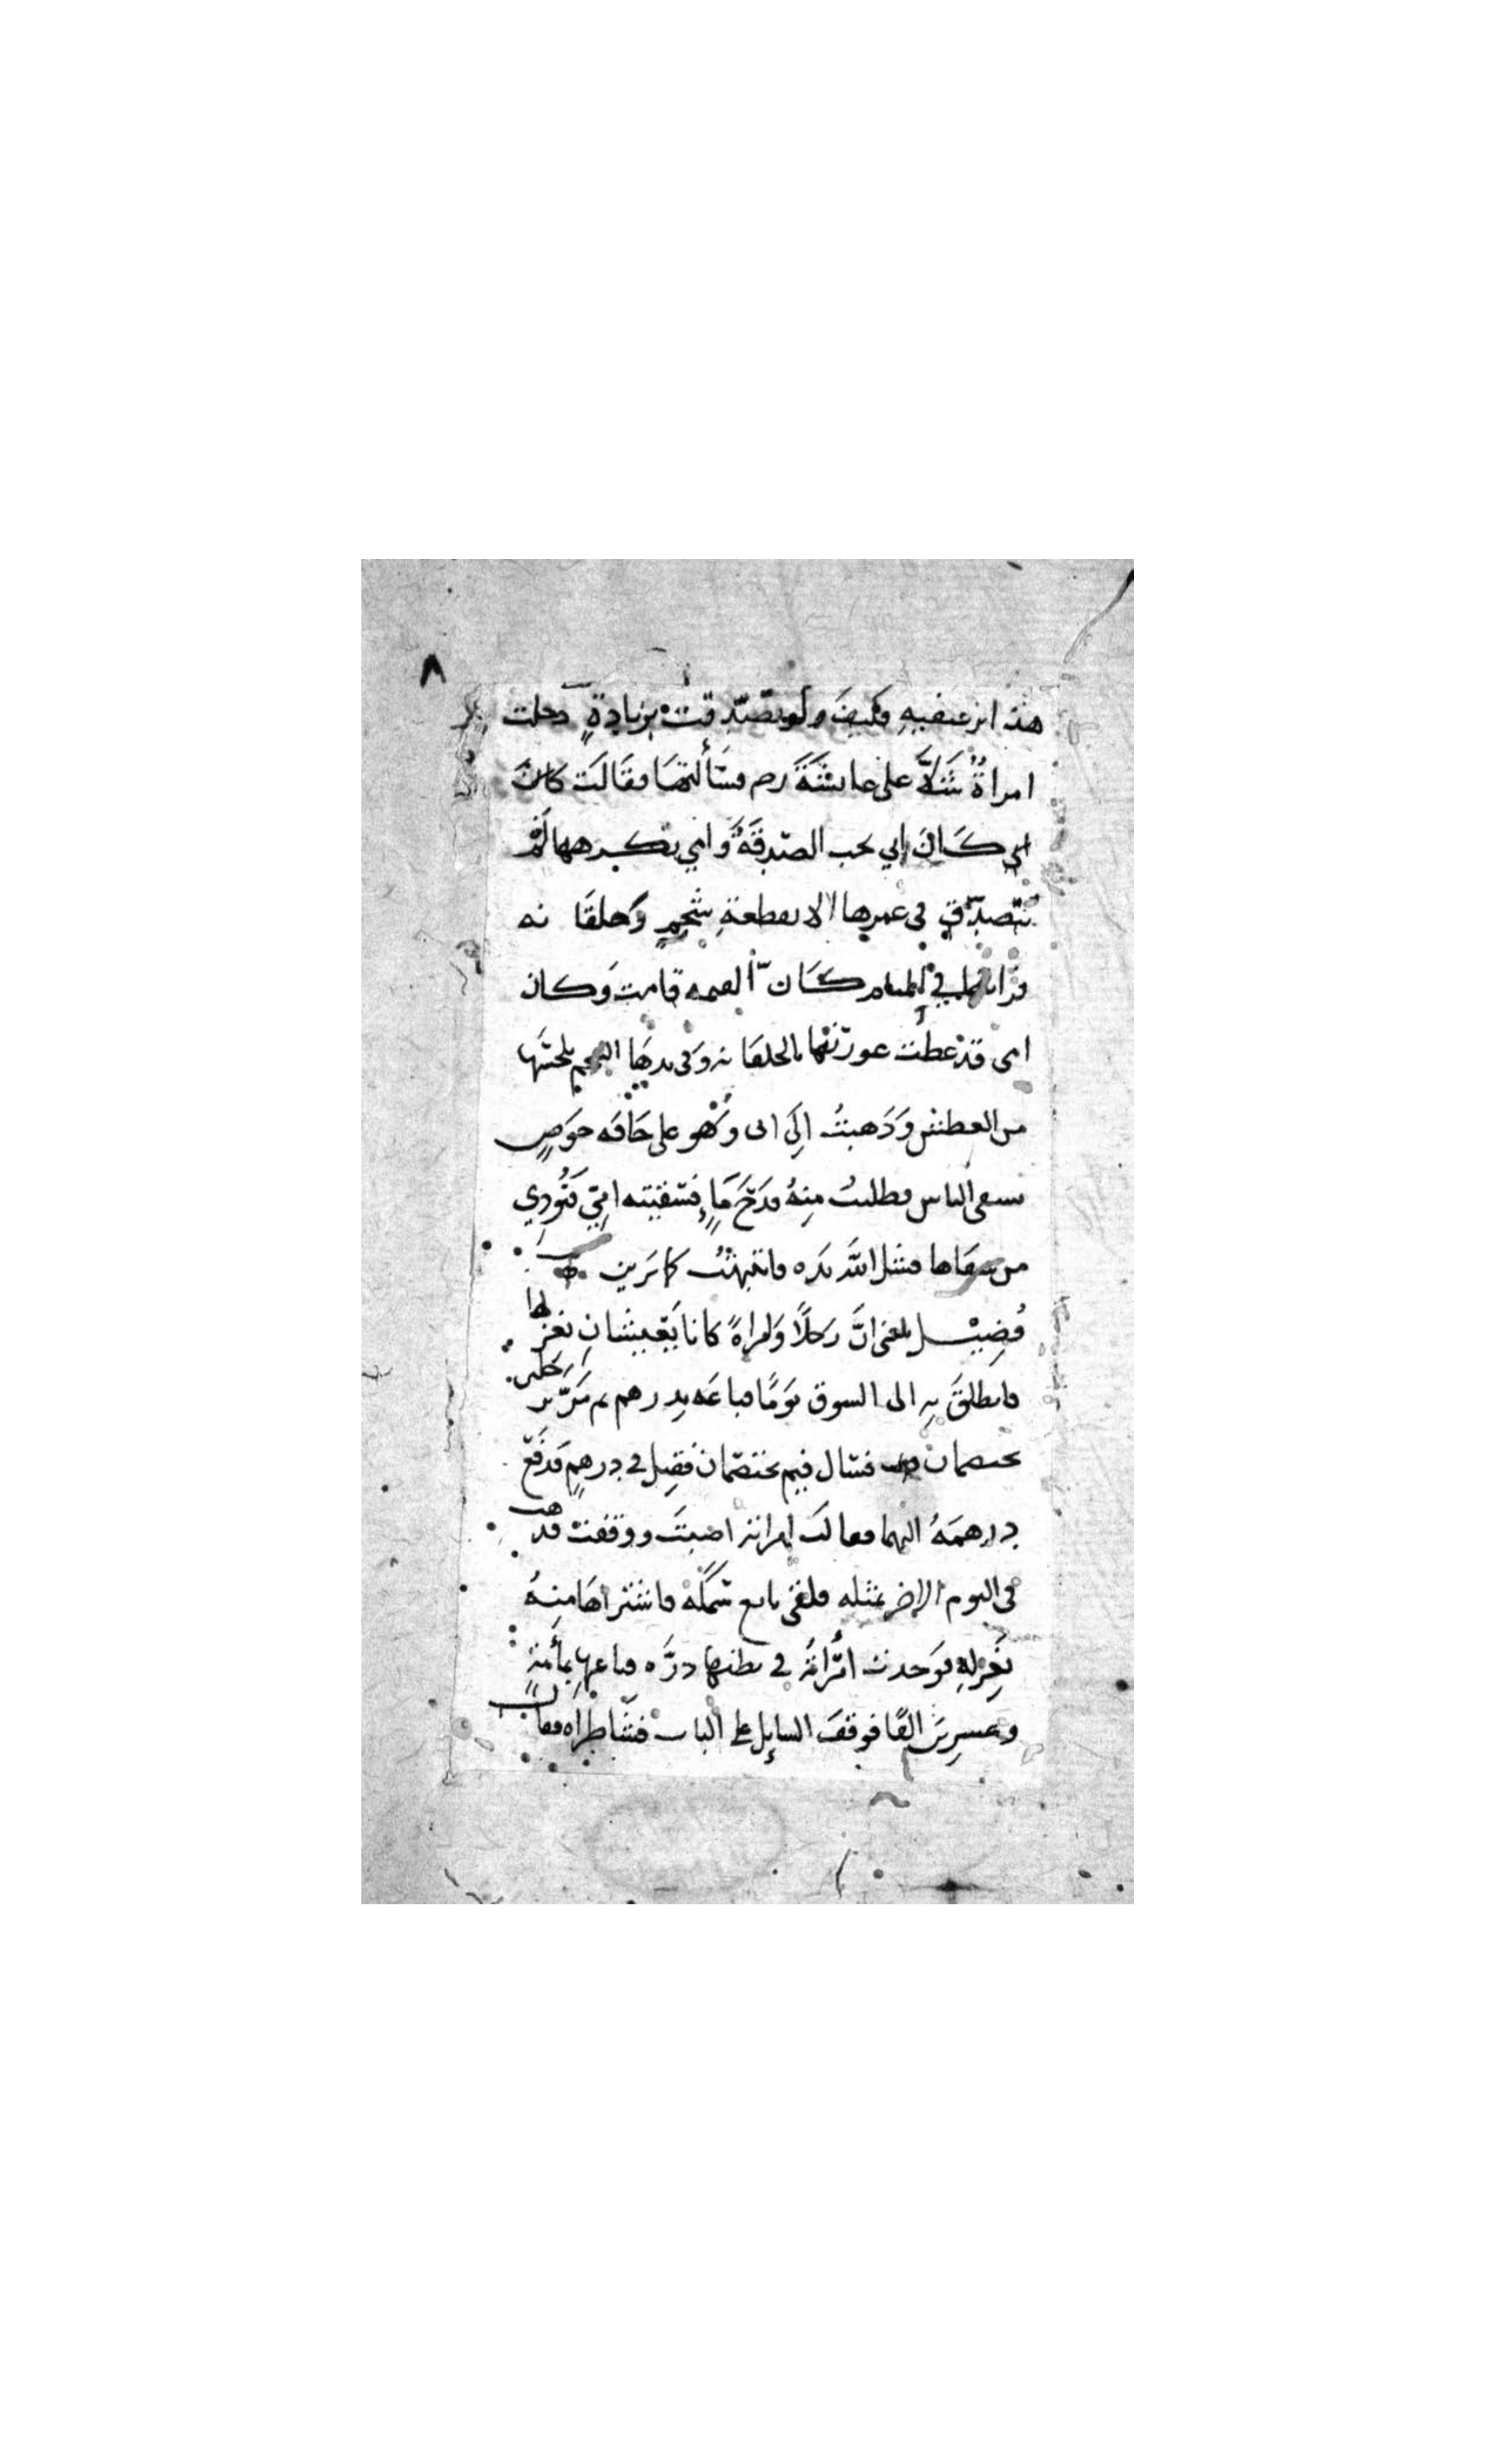 ٨
هذا من عفيه فكيف ولو تصدقت بزيادة دخلت
امراةٌ شَلاَّ على عايشَةَ رضي فسَأَلتهَا فقَالَت كانَ
ابي كَانَ ابي يحب الصّدقَةَ وَامي تكرهها لَمْ
تتصدّق في عمرها الا بقطعةِ شَحْمٍ وَخلقَانه
فرايتهما في المنام كَانّ القيمه قامت وَكان
امي قدْ غطت عورتها بالخلقَانه وَفي يدهَا الشحم تلحسَها
من العطش وَذَهبتُ اِلَى ابي وَهْو على حَافَه حوَضٍ
يسقي الناس فطلبتُ مِنهُ قدَحَ مَاءٍ فسَقيته امّي فَنُودي
من سقاها فشل اللَّه يَده فانتبهتُ كما تَرين
فُضِيْل بلغني انَّ رَجلًا وَامراةً كانا يَتّعيشانِ بغزلها
فانطلقَ به الى السوق يَومًا فباعَه بدرهم ثم مَرَّ برجلين
يختصمان فسَال فيم يختصمان فقيل في درهمٍ فَدفَعَ
درهمَهُ اليهما فقالت امراته اصبتَ ووفقت فذهب
في اليوم الاخر بمثله فلقي بايع سَمَكَه فاشتراهَا منهُ
بغزلهِ فوَجدت امْرَاتهُ في بطنها درَّه فباعها بمأيةِ
وعشرينَ الفًا فوقفَ السايِل على الباب فشَاطرَاه فقال